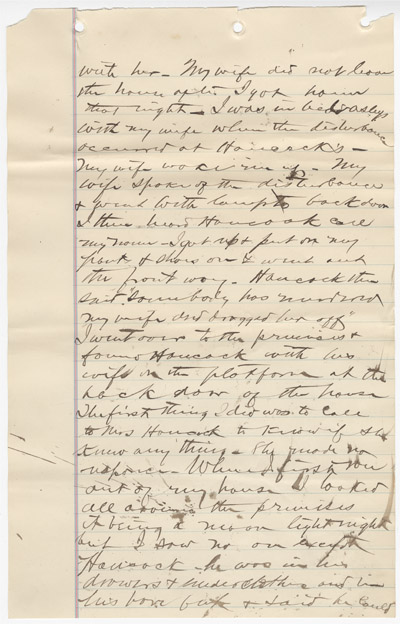 with her - My wife did not leave
the house after I got home
that night - I was in bed asleep
with my wife when the disturbance
occurred at Hancock's -
My wife woke me up - My
wife spoke of the disturbance
& went with lamp to back door
I then heard Hancock call
my name - I got up & put on my
pants & shoes on & went out
the front way - Hancock then
said "Somebody has murdered
my wife and dragged her off"
I went over to the premises &
found Hancock with his
wife on the platform at the
back door of the house
The first thing I did was to call
to Mrs Hancock to know if she
knew any thing - She made no
response - When I first
out of my house I looked
all around the premises
it being a moon light night
but I saw no one except
Hancock - he was in his
drawers & underclothes and in
his bare feet & said he could